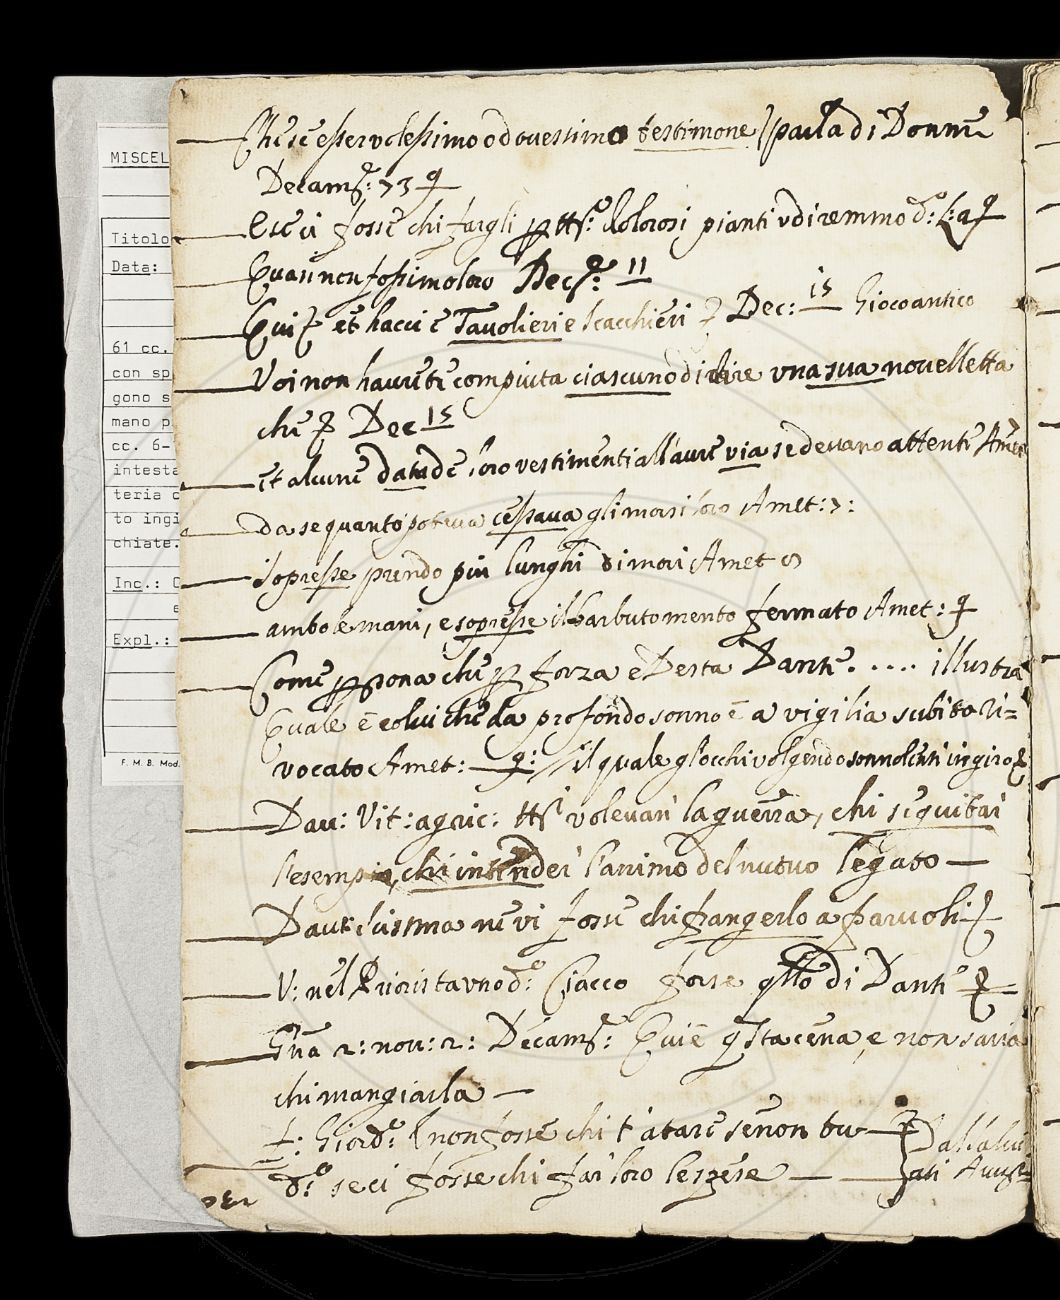 MISCEL
Titolo
Data:
61 cc.
con sp
gono s
mano p
cc. 6-
intesta
teria c
to ingi
chiate.
Inc.: C
e
Expl.:
F. M. B. Mod.
essere testimone parla di Donne
Decam: 73
fosse chi fargli dolorosi pianti udiremmo
Quasi non fossimo loro Dec: 11
Qui et hacci e Tavolieri e scacchieri Dec: 15 Gioco antico
Voi non havrete compiuta ciascuno di dire una sua novelletta
che Dec 15
et alcune date de loro vestimenti all'aure via sedevano attente
da se quanto poteva cessava gli morsi loro Amet: 7:
sopresse prendo piu lunghi dimori Amet
ambo le mani, e sopresse il barbuto mento fermato Amet: 9
Come persona che per forza è Desta Dante. .... illustra
Quale è colui che da profondo sonno è a vigilia subito ri=
vocato Amet: 9: il quale gl'occhi volgendo sonnolenti in giro
Dav: Vit: agric: volevan la guerra, chi seguitar
l'esempio, chi intender l'animo del nuovo legato —
Dav: scisma ne vi fosse chi frangerlo a parvoli
V: nel Priorista uno d: Ciacco forse quello di Dante
G: na 2: nov: 2: Decam: Quì è questa cena, e non saria
chi mangiarla —
f: Giord: non fosse chi t'atare se non tu
d: se ci fosse chi far loro le spese —
per